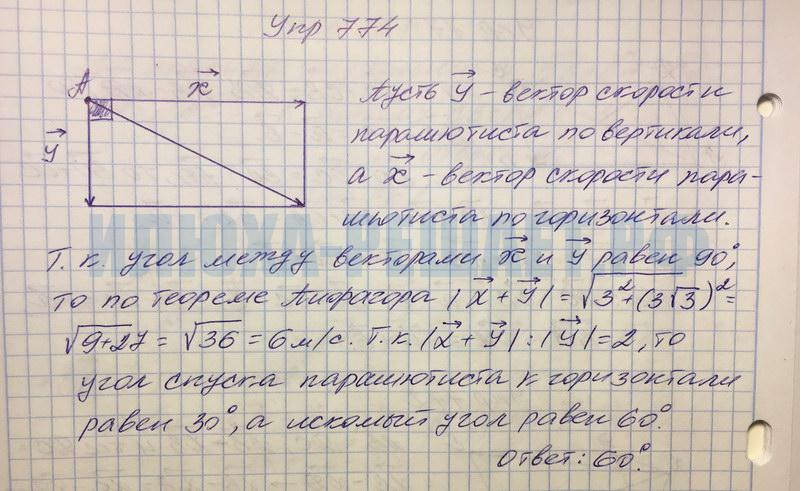 Упр 774
A
x
y
Пусть y - вектор скорости
парашютиста по вертикали,
а x - вектор скорости пара-
шютиста по горизонтали.
Т. к. угол между векторами x и y равен 90°,
то по теореме Пифагора |x + y| = √3² + (3√3)² =
√9+27 = √36 = 6 м/с. Т. к. |x + y| : |y| = 2, то
угол спуска парашютиста к горизонтали
равен 30°, а искомый угол равен 60°.
Ответ: 60°.